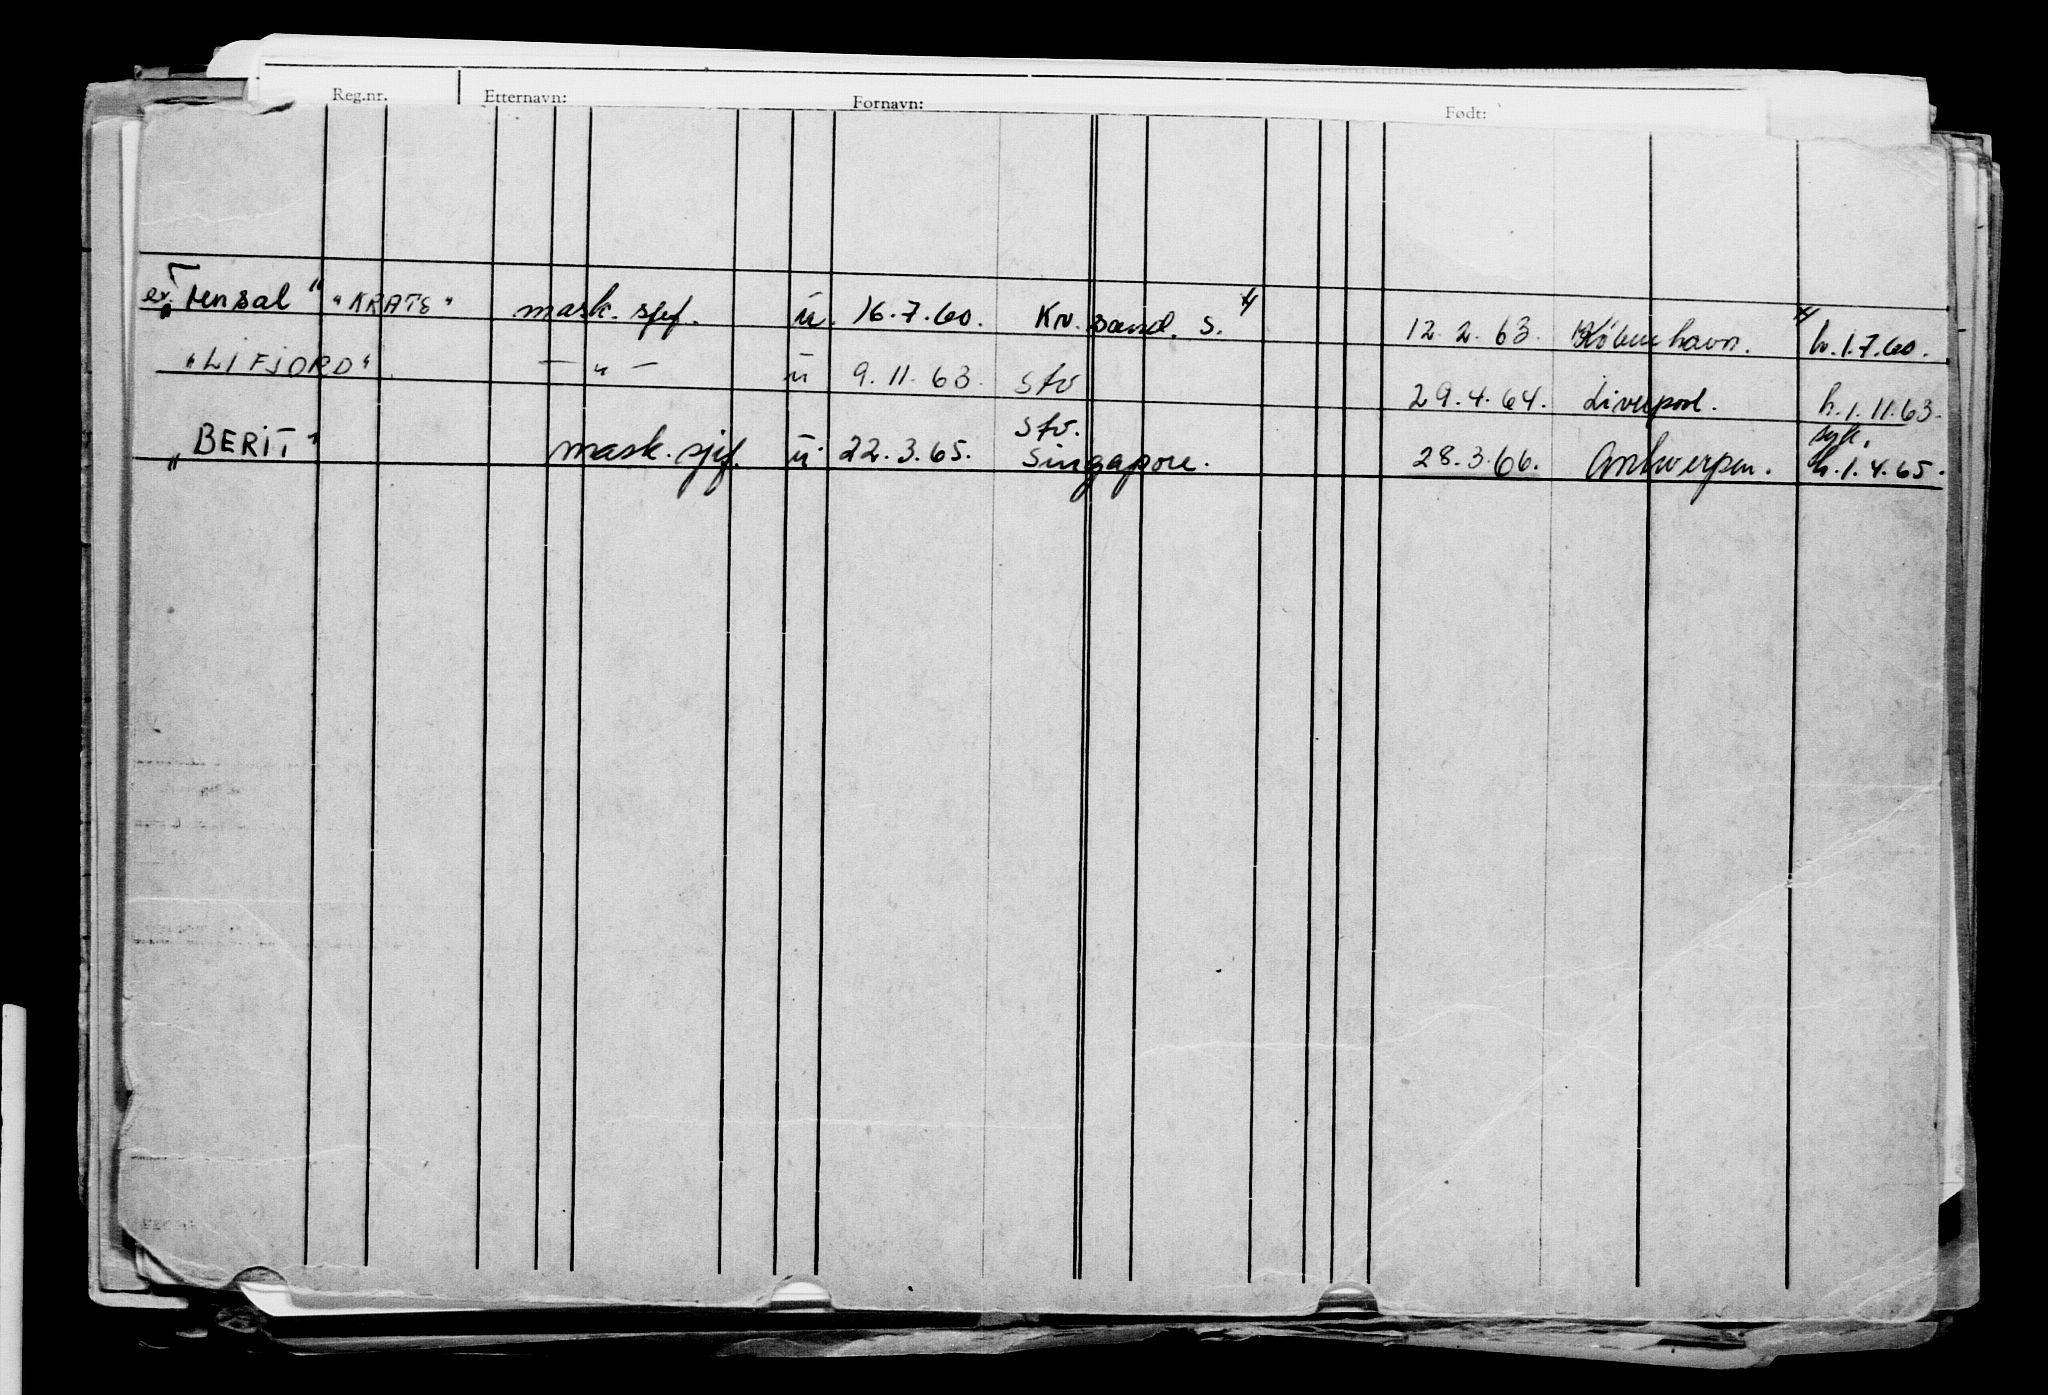 Reg.nr. Etternavn: Fornavn: Født:
ex. "Tensal" "KRATE" mask. sjef. u. 16.7.60. Kr. sand. S. 12.2.63. København. h.1.7.60.
"LIFJORD" — " — u 9.11.63. stv 29.4.64. Liverpool. h.1.11.63.
"BERIT" mask. sjef. u. 22.3.65. stv. Singapore. 28.3.66. Antwerpen. syk. h.1.4.65.